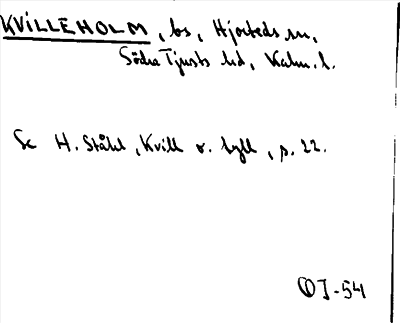 KVILLEHOLM, bs, Hjorteds sn,
Södra Tjusts hd, Kalm. l.
Se H. Ståhl, Kvill o. hyll, p. 22.
OJ-54